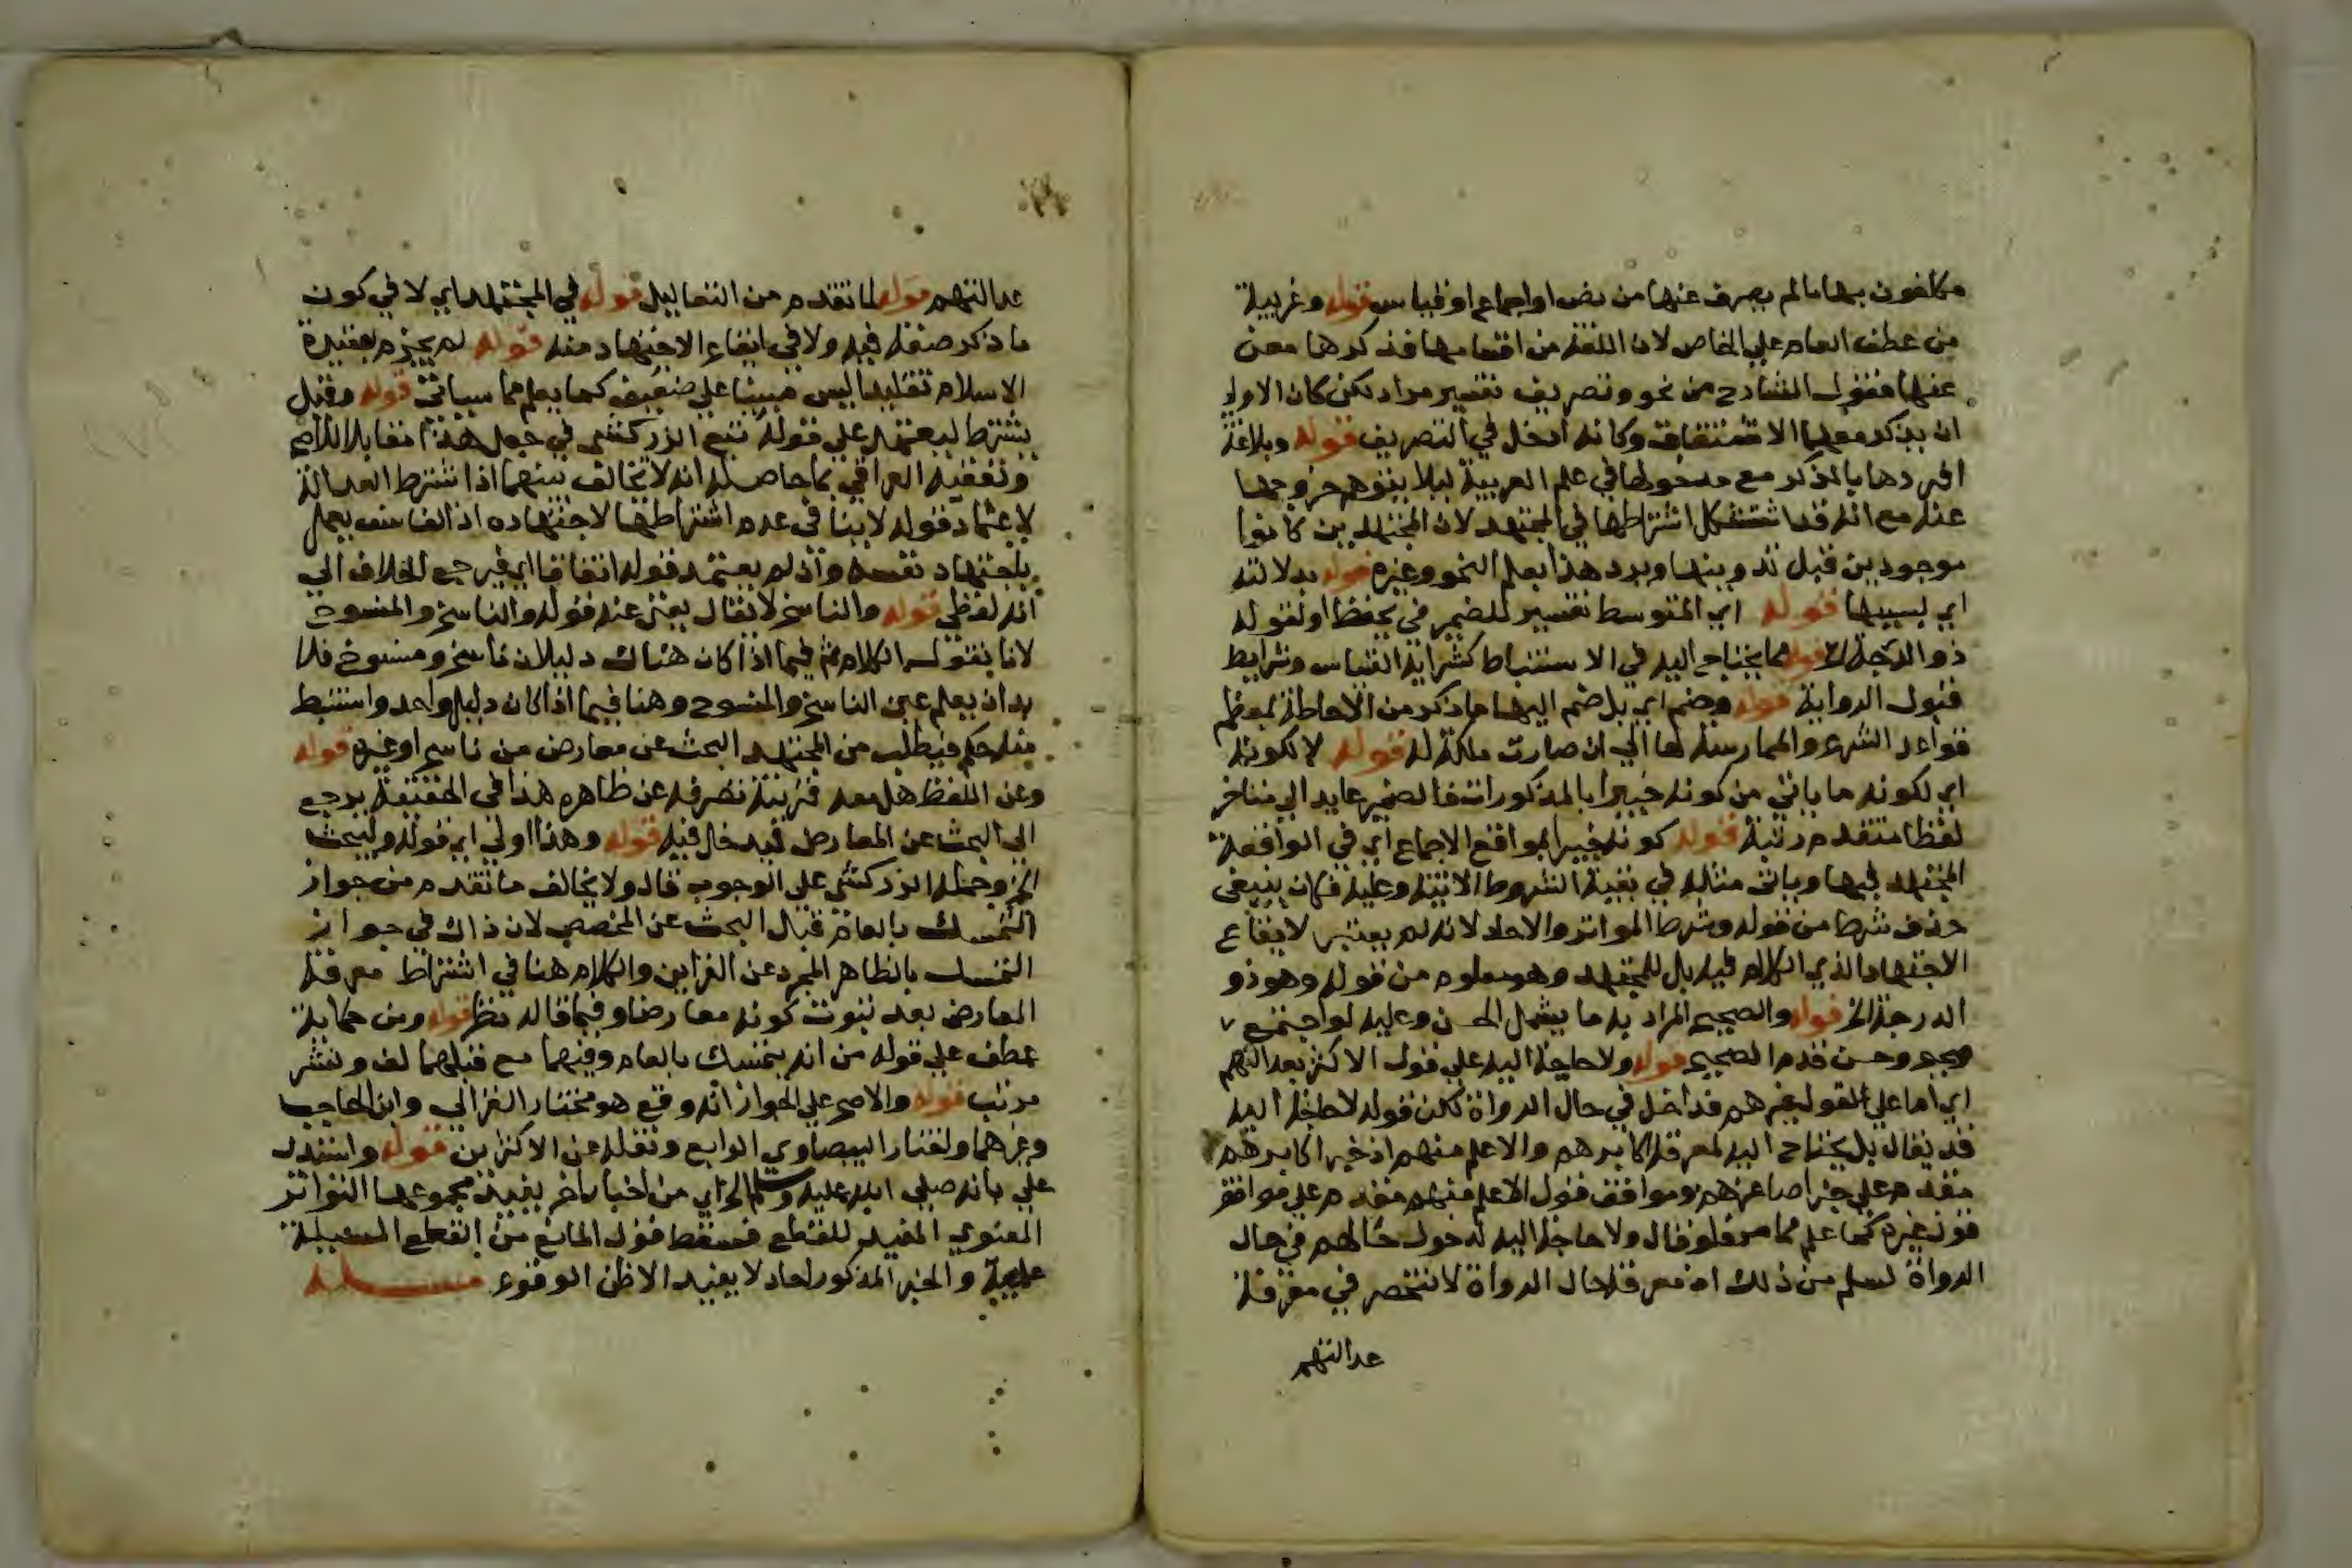 مكلفون بها ما لم يصرف عنها من نص او اجماع او قياس قوله وعربية
من عطف العام على الخاص لان اللغة من اقسامها فذكرها معن
عنها فقول الشارح من نحو وتصريف تفسير مراد لكن كان الاولى
ان يذكر معها الاشتقاق وكانه ادخل في التصريف قوله وبلاغة
افردها بالذكر مع دخولها في علم العربية ليلا يتوهم خروجها
عنه مع انه قد استشكل اشتراطها في المجتهد لان المجتهدين كانوا
موجودين قبل تدوينها ويرد هذا بعلم النحو وغيره قوله بدلالته
اي بسببها قوله اي المتوسط تفسير للضمير في يحفظ او لقوله
ذو الدرجة الخ قوله مما يحتاج اليه في الاستنباط كشرايط القياس وشرايط
قبول الرواية قوله وضم اي بل ضم اليها ما ذكر من الاحاطة بمعظم
قواعد الشرع والممارسة لها الى ان صارت ملكة له قوله لا لكونه
اي لكونه ما ياتي من كونه خبيرا بالمذكورات فالضمير عايد الى متاخر
لفظا متقدم رتبة قوله كونه خبيرا بمواقع الاجماع اي في الواقعة
المجتهد فيها وياتي مثله في بقية الشروط الاتية وعليه فكان ينبغي
حذف شرط من قوله وشرط المتواتر والاحاد لانه لم يعتبر لايقاع
الاجتهاد الذي الكلام فيه بل للمجتهد وهو معلوم من قوله وهو ذو
الدرجة الخ قوله والصحيح المراد به ما يشمل الحسن وعليه لو اجتمع
صحيح وحسن قدم الصحيح قوله ولا حاجة اليه على قول الاكثر بعدالتهم
اي اما على القول بغيرهم فداخل في حال الرواة لكن قوله لا حاجة اليه
قد يقال بل يحتاج اليه لمعرفة اكابرهم والاعلم منهم اذ خبر اكابرهم
مقدم على خبر اصاغرهم وموافق قول الاعلم منهم مقدم على موافق
قول غيره كما علم مما مر فلو قال ولا حاجة اليه لدخول حالهم في حال
الرواة لسلم من ذلك اذ معرفة حال الرواة لا تنحصر في معرفة
عدالتهم
عدالتهم قوله لما تقدم من التعاليل قوله في المجتهد اي لا في كون
ما ذكر صفة فيه ولا في ايقاع الاجتهاد منه قوله لم يجزم بعقيدة
الاسلام تقليدا ليس مبنيا على ضعيف كما يعلم مما سياتي قوله وقيل
يشترط ليعتمد على قوله تبع الزركشي في جعل هذا مقابلا للاصح
وتعقبه العراقي بما حاصله انه لا تخالف بينهما اذ اشتراط العدالة
لاعتماد قوله لا ينافي عدم اشتراطها لاجتهاده اذ الفاسق يعمل
باجتهاد نفسه وان لم يعتمد قوله اتفاقا اي فيرجع الخلاف الى
انه لفظي قوله والناسخ لا يقال يغني عنه قوله والناسخ والمنسوخ
لانا نقول الكلام ثم فيما اذا كان هناك دليلان ناسخ ومنسوخ فلا
بد ان يعلم عين الناسخ والمنسوخ وهنا فيما اذا كان دليل واحد واستنبط
منه حكم فيطلب من المجتهد البحث عن معارض من ناسخ او غيره قوله
وعن اللفظ هل معه قرينة تصرفه عن ظاهره هذا في الحقيقة يرجع
الى البحث عن المعارض فيدخل فيه قوله وهذا اولى اي قوله وليبحث
الخ وحمله الزركشي على الوجوب قال ولا يخالف ما تقدم من جواز
التمسك بالعام قبل البحث عن المخصص لان ذاك في جواز
التمسك بالظاهر المجرد عن القراين والكلام هنا في اشتراط معرفة
المعارض بعد ثبوت كونه معارضا وفيما قاله نظر قوله ومن حكاية
عطف على قوله من انه يتمسك بالعام وفيهما مع قبلهما لف ونشر
مرتب قوله والاصح على الجواز انه وقع هو مختار الغزالي وابن الحاجب
وغيرهما واختار البيضاوي الرابع ونقله عن الاكثرين قوله واستدل
على بانه صلى الله عليه وسلم الخ اي من اخبار اخر يفيد مجموعها التواتر
المعنوي المفيد للقطع فسقط قول المانع من القطع المسيلة
علمية والخبر المذكور احاد لا يفيد الا ظن الوقوع مسيلة